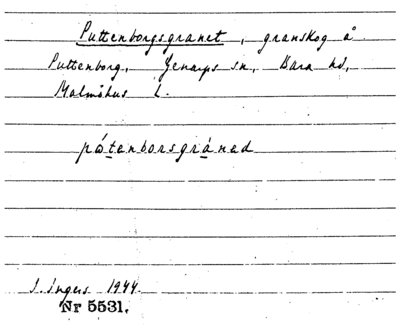 Puttenborgsgranet, granskog å
Puttenborg, Genarps sn, Bara hd,
Malmöhus l.
pótenborsgránad
I. Ingers 1944.
Nr 5531.